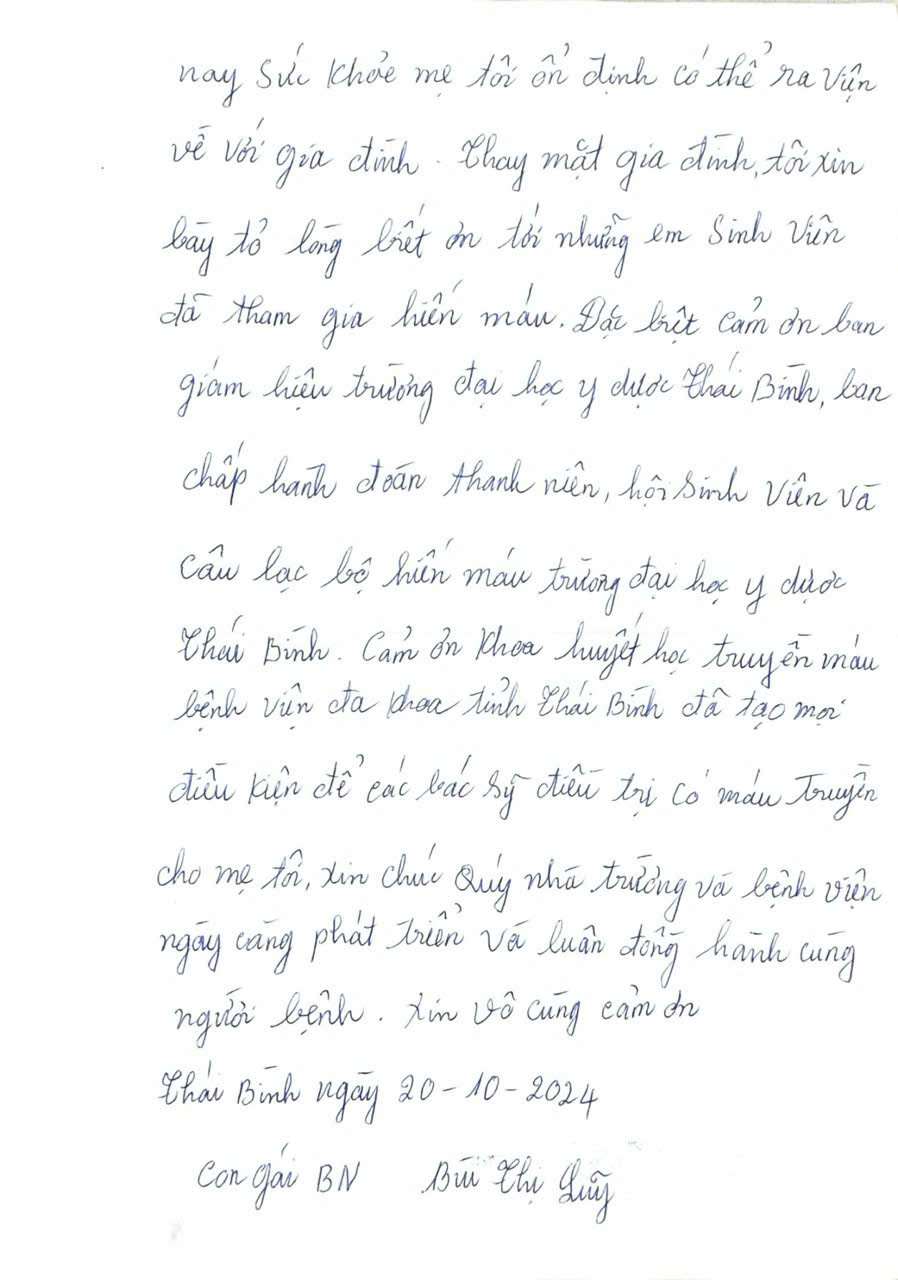 nay sức khỏe mẹ tôi ổn định có thể ra viện
về với gia đình. Thay mặt gia đình, tôi xin
bày tỏ lòng biết ơn tới những em sinh viên
đã tham gia hiến máu. Đặc biệt cảm ơn ban
giám hiệu trường đại học y dược Thái Bình, ban
chấp hành đoàn thanh niên, hội sinh viên và
câu lạc bộ hiến máu trường đại học y dược
Thái Bình. Cảm ơn khoa huyết học truyền máu
bệnh viện đa khoa tỉnh Thái Bình đã tạo mọi
điều kiện để các bác sỹ điều trị có máu truyền
cho mẹ tôi, xin chúc Quý nhà trường và bệnh viện
ngày càng phát triển và luân đồng hành cùng
người bệnh. Xin vô cùng cảm ơn
Thái Bình ngày 20-10-2024
Con gái BN Bùi Thị Luỹ